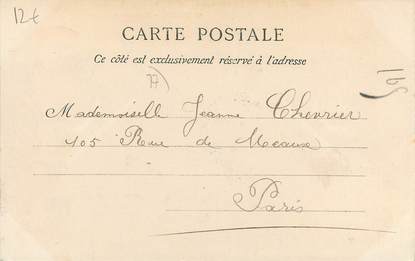 12€
CARTE POSTALE
Ce côté est exclusivement réservé à l'adresse
77)
Mademoiselle Jeanne Chevrier
105 Rue de Meaux
Paris